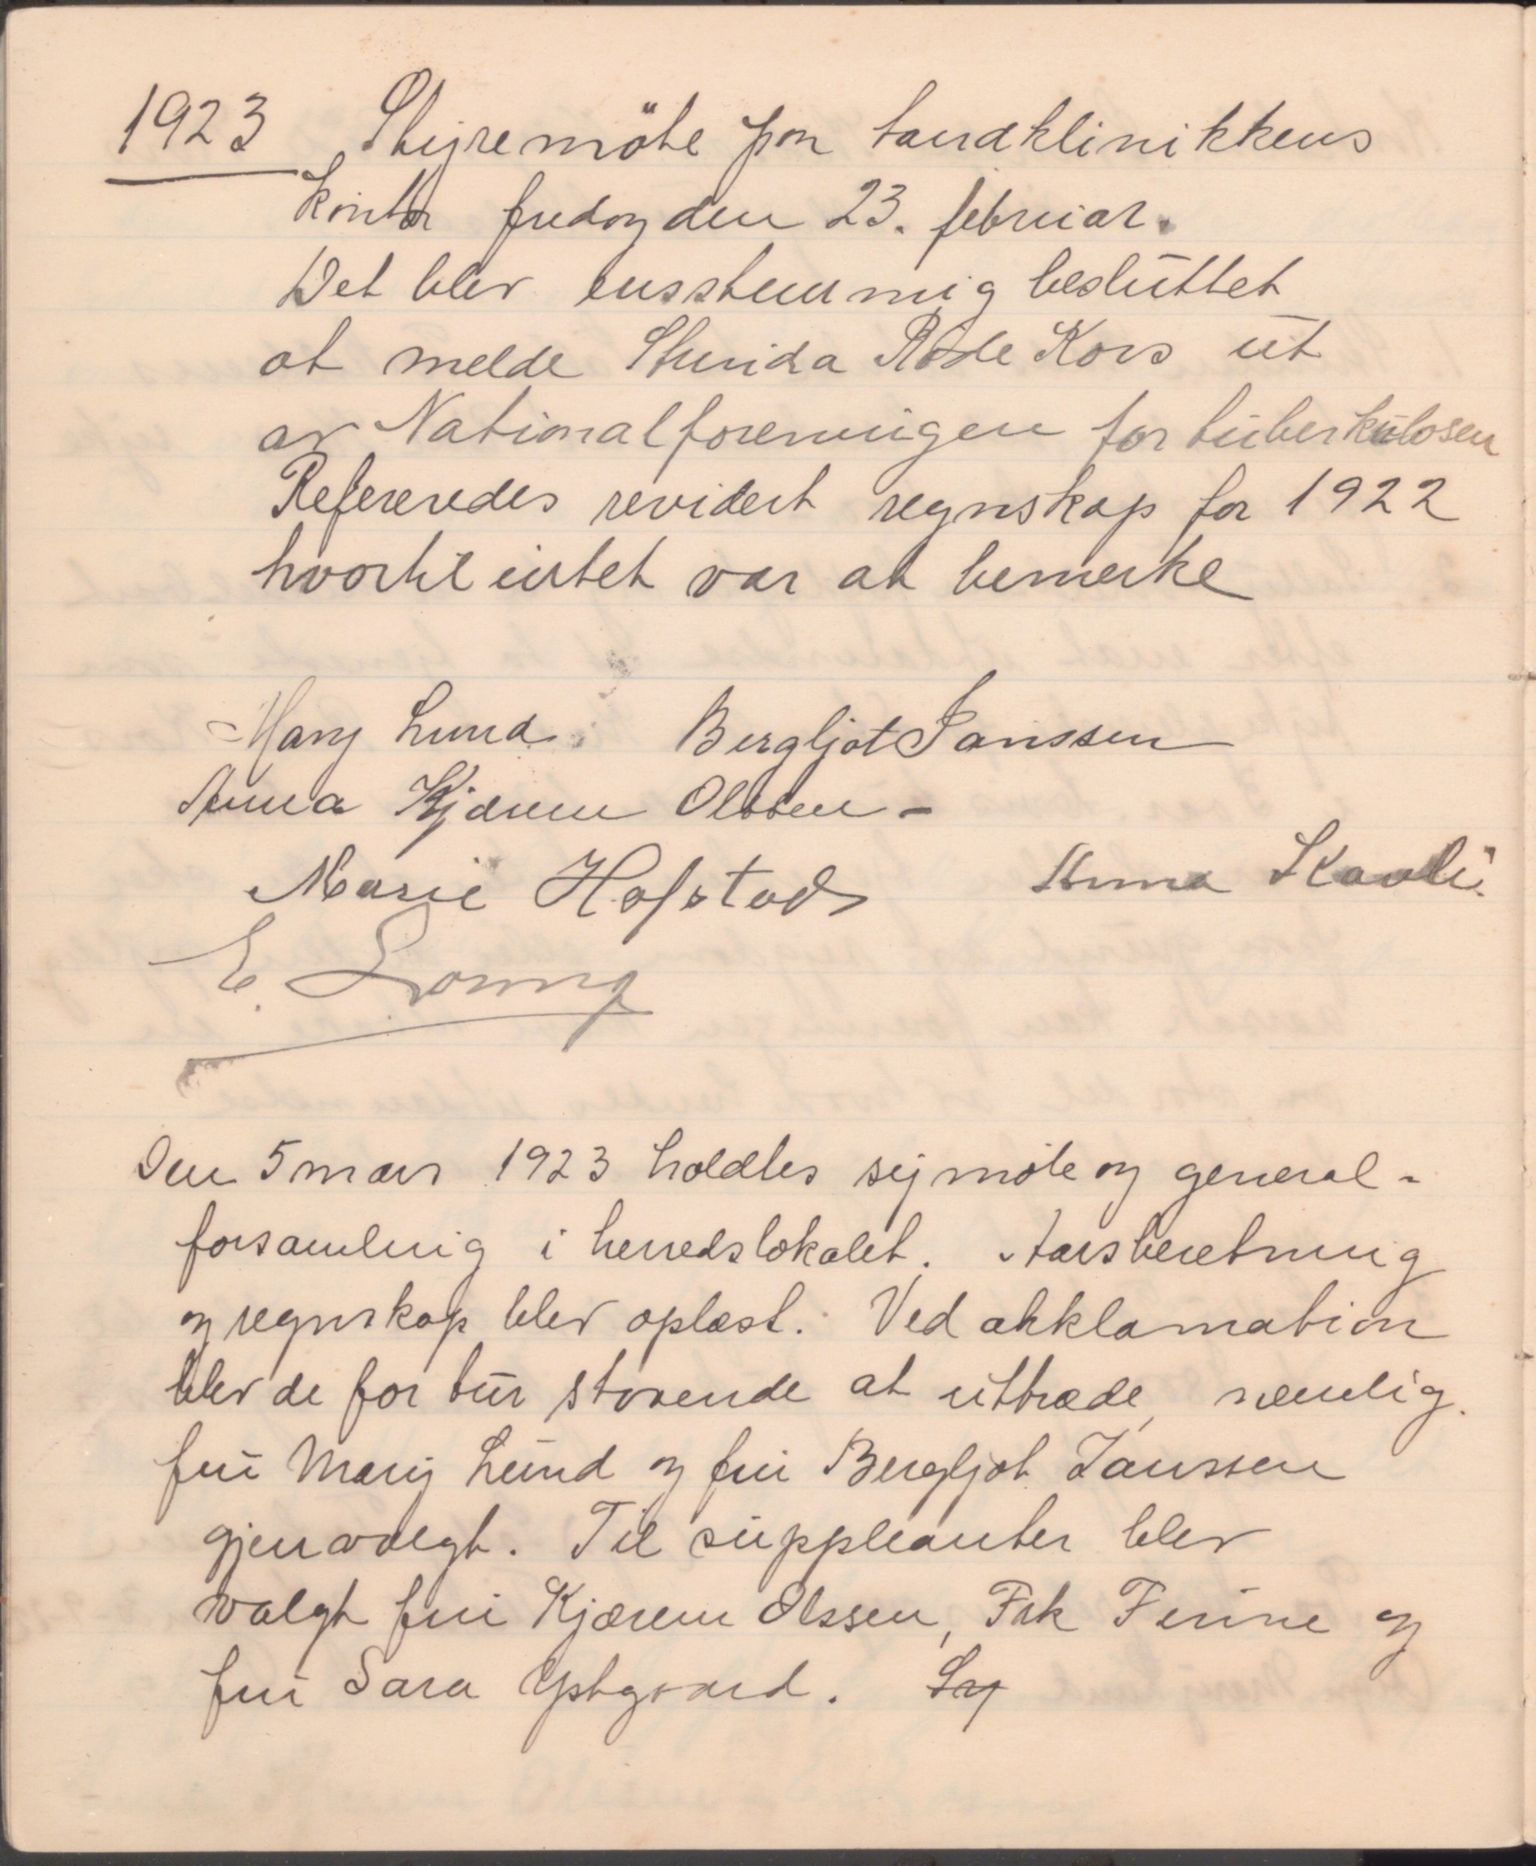 1923 Styremöte paa tandklinikkens
kontor fredag den 23. februar.
Det blev enstemmig besluttet
at melde Røde Kors ut
av Nationalforeningen for tuberkulosen
Refereredes revidert regnskap for 1922
hvortil intet var at bemerke
Mary Lund Bergljot Janssen
Anna Kjærem Olssen -
Marie Hofstad Anna Skavli
E.
Den 5 mars 1923 holdtes symøte og general-
forsamling i herredslokalet. Aarsberetning
og regnskap blev oplæst. Ved akklamation
blev de for tur staaende at uttræde, nemlig
fru Mary Lund og fru Bergljot Janssen
gjenvalgt. Til suppleanter blev
valgt fru Kjærem Olssen, Frk og
fru Sara Ystgaard.